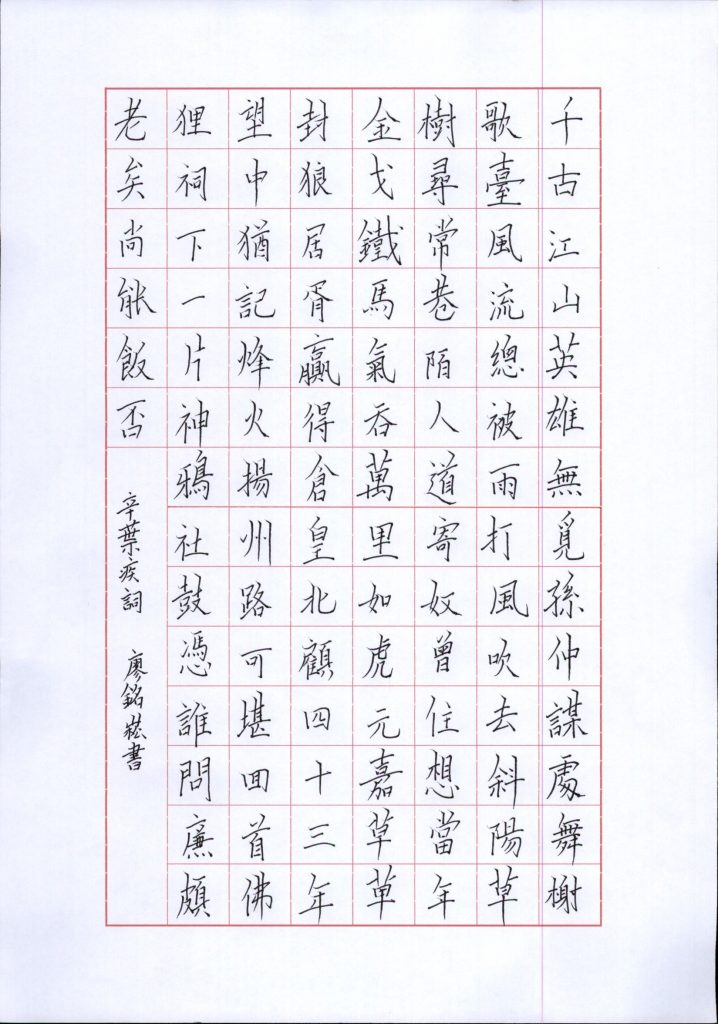 千古江山英雄無覓孫仲謀處舞榭
歌臺風流總被雨打風吹去斜陽草
樹尋常巷陌人道寄奴曾住想當年
金戈鐵馬氣吞萬里如虎元嘉草草
封狼居胥贏得倉皇北顧四十三年
望中猶記烽火揚州路可堪回首佛
狸祠下一片神鴉社鼓憑誰問廉頗
老矣尚能飯否
辛棄疾詞 廖銘崧書